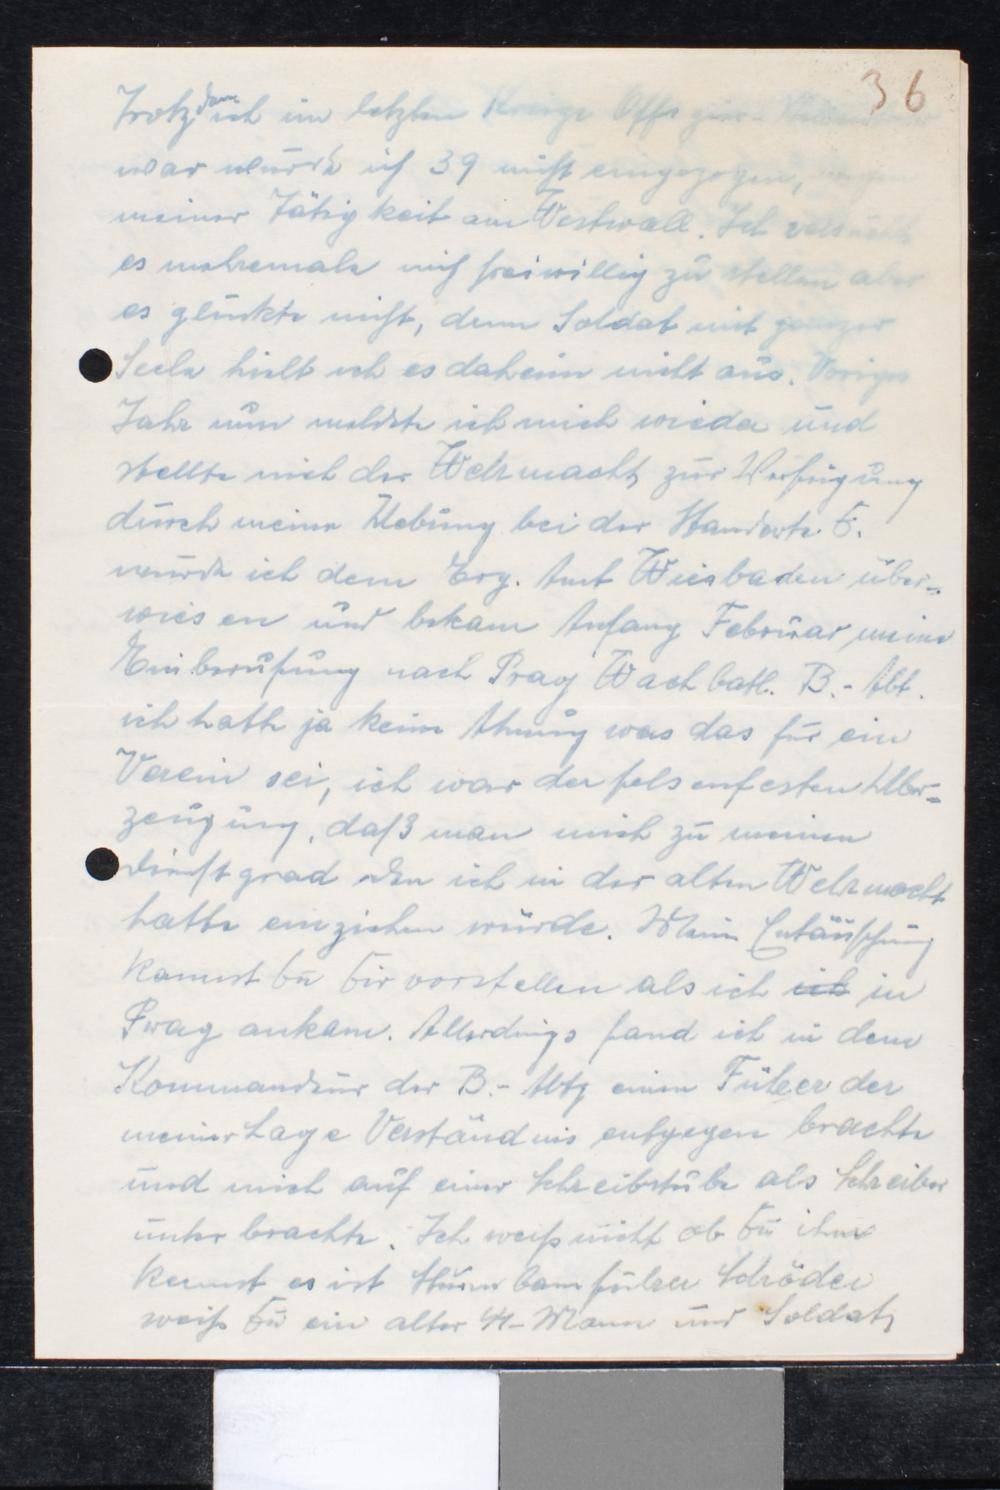 36
Trotzdem ich im letzten Kriege Offizier-
war wurde ich 39 nicht eingezogen, wegen
meiner Tätigkeit am Westwall. Ich versuchte
es mehremale mich freiwillig zu stellen aber
es glückte nicht, denn Soldat mit ganzer
Seele hielt ich es daheim nicht aus. Voriges
Jahr nun meldete ich mich wieder und
stellte mich der Wehrmacht zur Verfügung
durch meine Uebung bei der Standarte F.
wurde ich dem Erg. Amt Wiesbaden über-
wiesen und bekam Anfang Februar meine
Einberufung nach Prag Wach batl. B.- Abt.
ich hatte ja keine Ahnung was das für ein
Verein sei, ich war der felsenfesten Ueber-
zeugung, daß man mich zu meinen
Dienstgrad den ich in der alten Wehrmacht
hatte einziehen würde. Meine Entäuschung
kannst Du Dir vorstellen als ich ich in
Prag ankam. Allerdings fand ich in dem
Kommandeur der B.- Abtg einen Führer der
meiner Lage Verständnis entgegen brachte
und mich auf einer Schreibstube als Schreiber
unter brachte. Ich weiß nicht ob Du ihn
kennst es ist Sturmbannführer Schröder
weiß Du ein alter SS-Mann und Soldat,